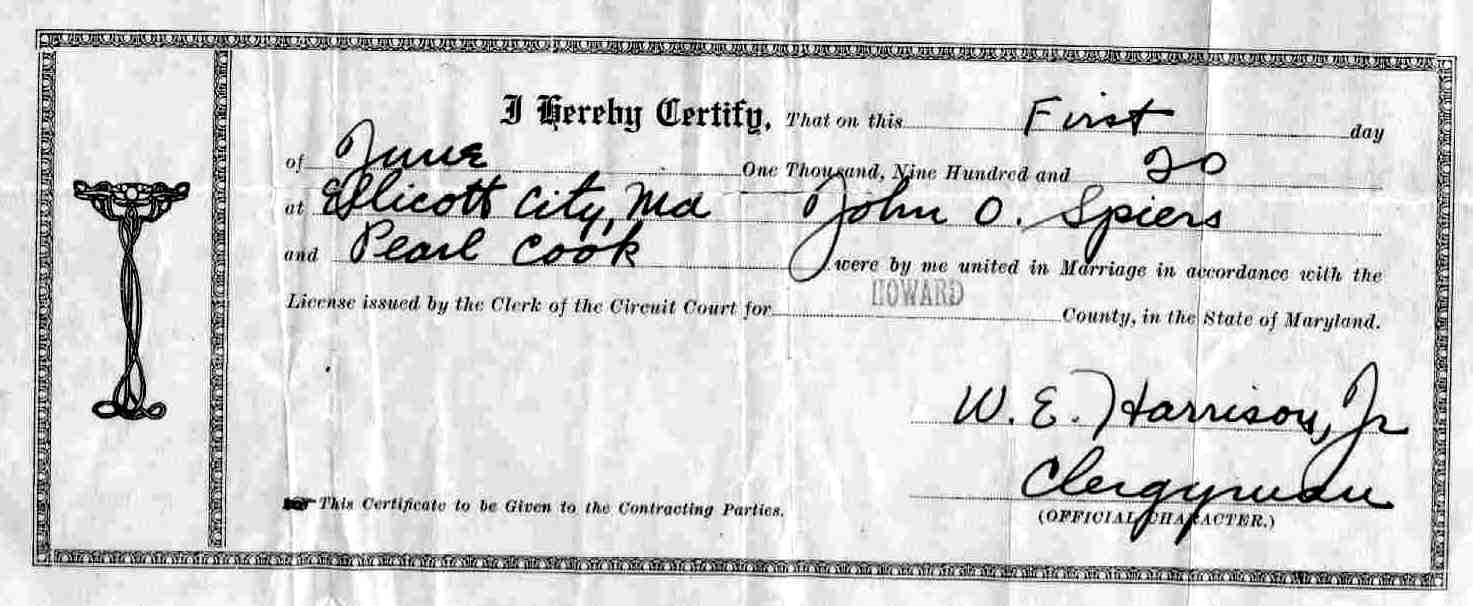 I Hereby Certify, That on this First day
of June One Thousand, Nine Hundred and 20
at Ellicott City, Md John O. Spiers
and Pearl Cook were by me united in Marriage in accordance with the
License issued by the Clerk of the Circuit Court for HOWARD County, in the State of Maryland.
W. E. Harrison, Jr
Clergyman
This Certificate to be Given to the Contracting Parties.
(OFFICIAL CHARACTER.)